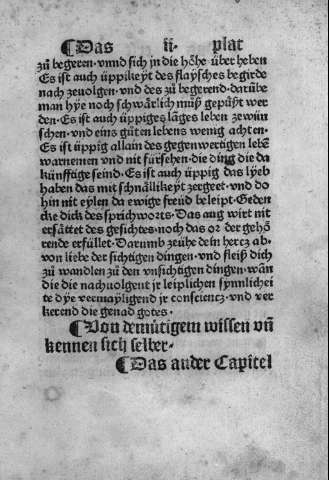 ¶Das ii· plat
zů begeren· vnnd sich jn die hőhe über heben
Es ist auch üppikeyt des flaysches begirde
nach zeuolgen· vnd des zů begerend· darūbe
man hÿe noch schwärlich můsʒ gepůsʒt wer
den· Es ist auch üppiges lāges leben zewün
schen· vnd eins gůten lebens wenig achten·
Es ist üppig allain des gegenwertigen lebē
warnemen vnd nit fürsehen· die ding die da
künfftige seind· Es ist auch üppig das lyeb
haben das mit schnällikeyt zergeet· vnd do
hin nit eylen da ewige freud beleipt· Geden
cke dick des sprichworts· Das aug wirt nit
ersättet des gesichtes· noch das or der gehő
rende erfüllet· Darumb zeühe dein hercz ab·
von liebe der sichtigen dingen· vnd fleiß dich
zů wandlen zů den vnsichtigen dingen· wān
die die nachuolgent jr leiplichen synnlichei
te dÿe vermayligend jr consciencz· vnd ver
kerend die genad gotes·
¶Von demütigem wissen vñ
kennen sich selber·
¶Das ander Capitel